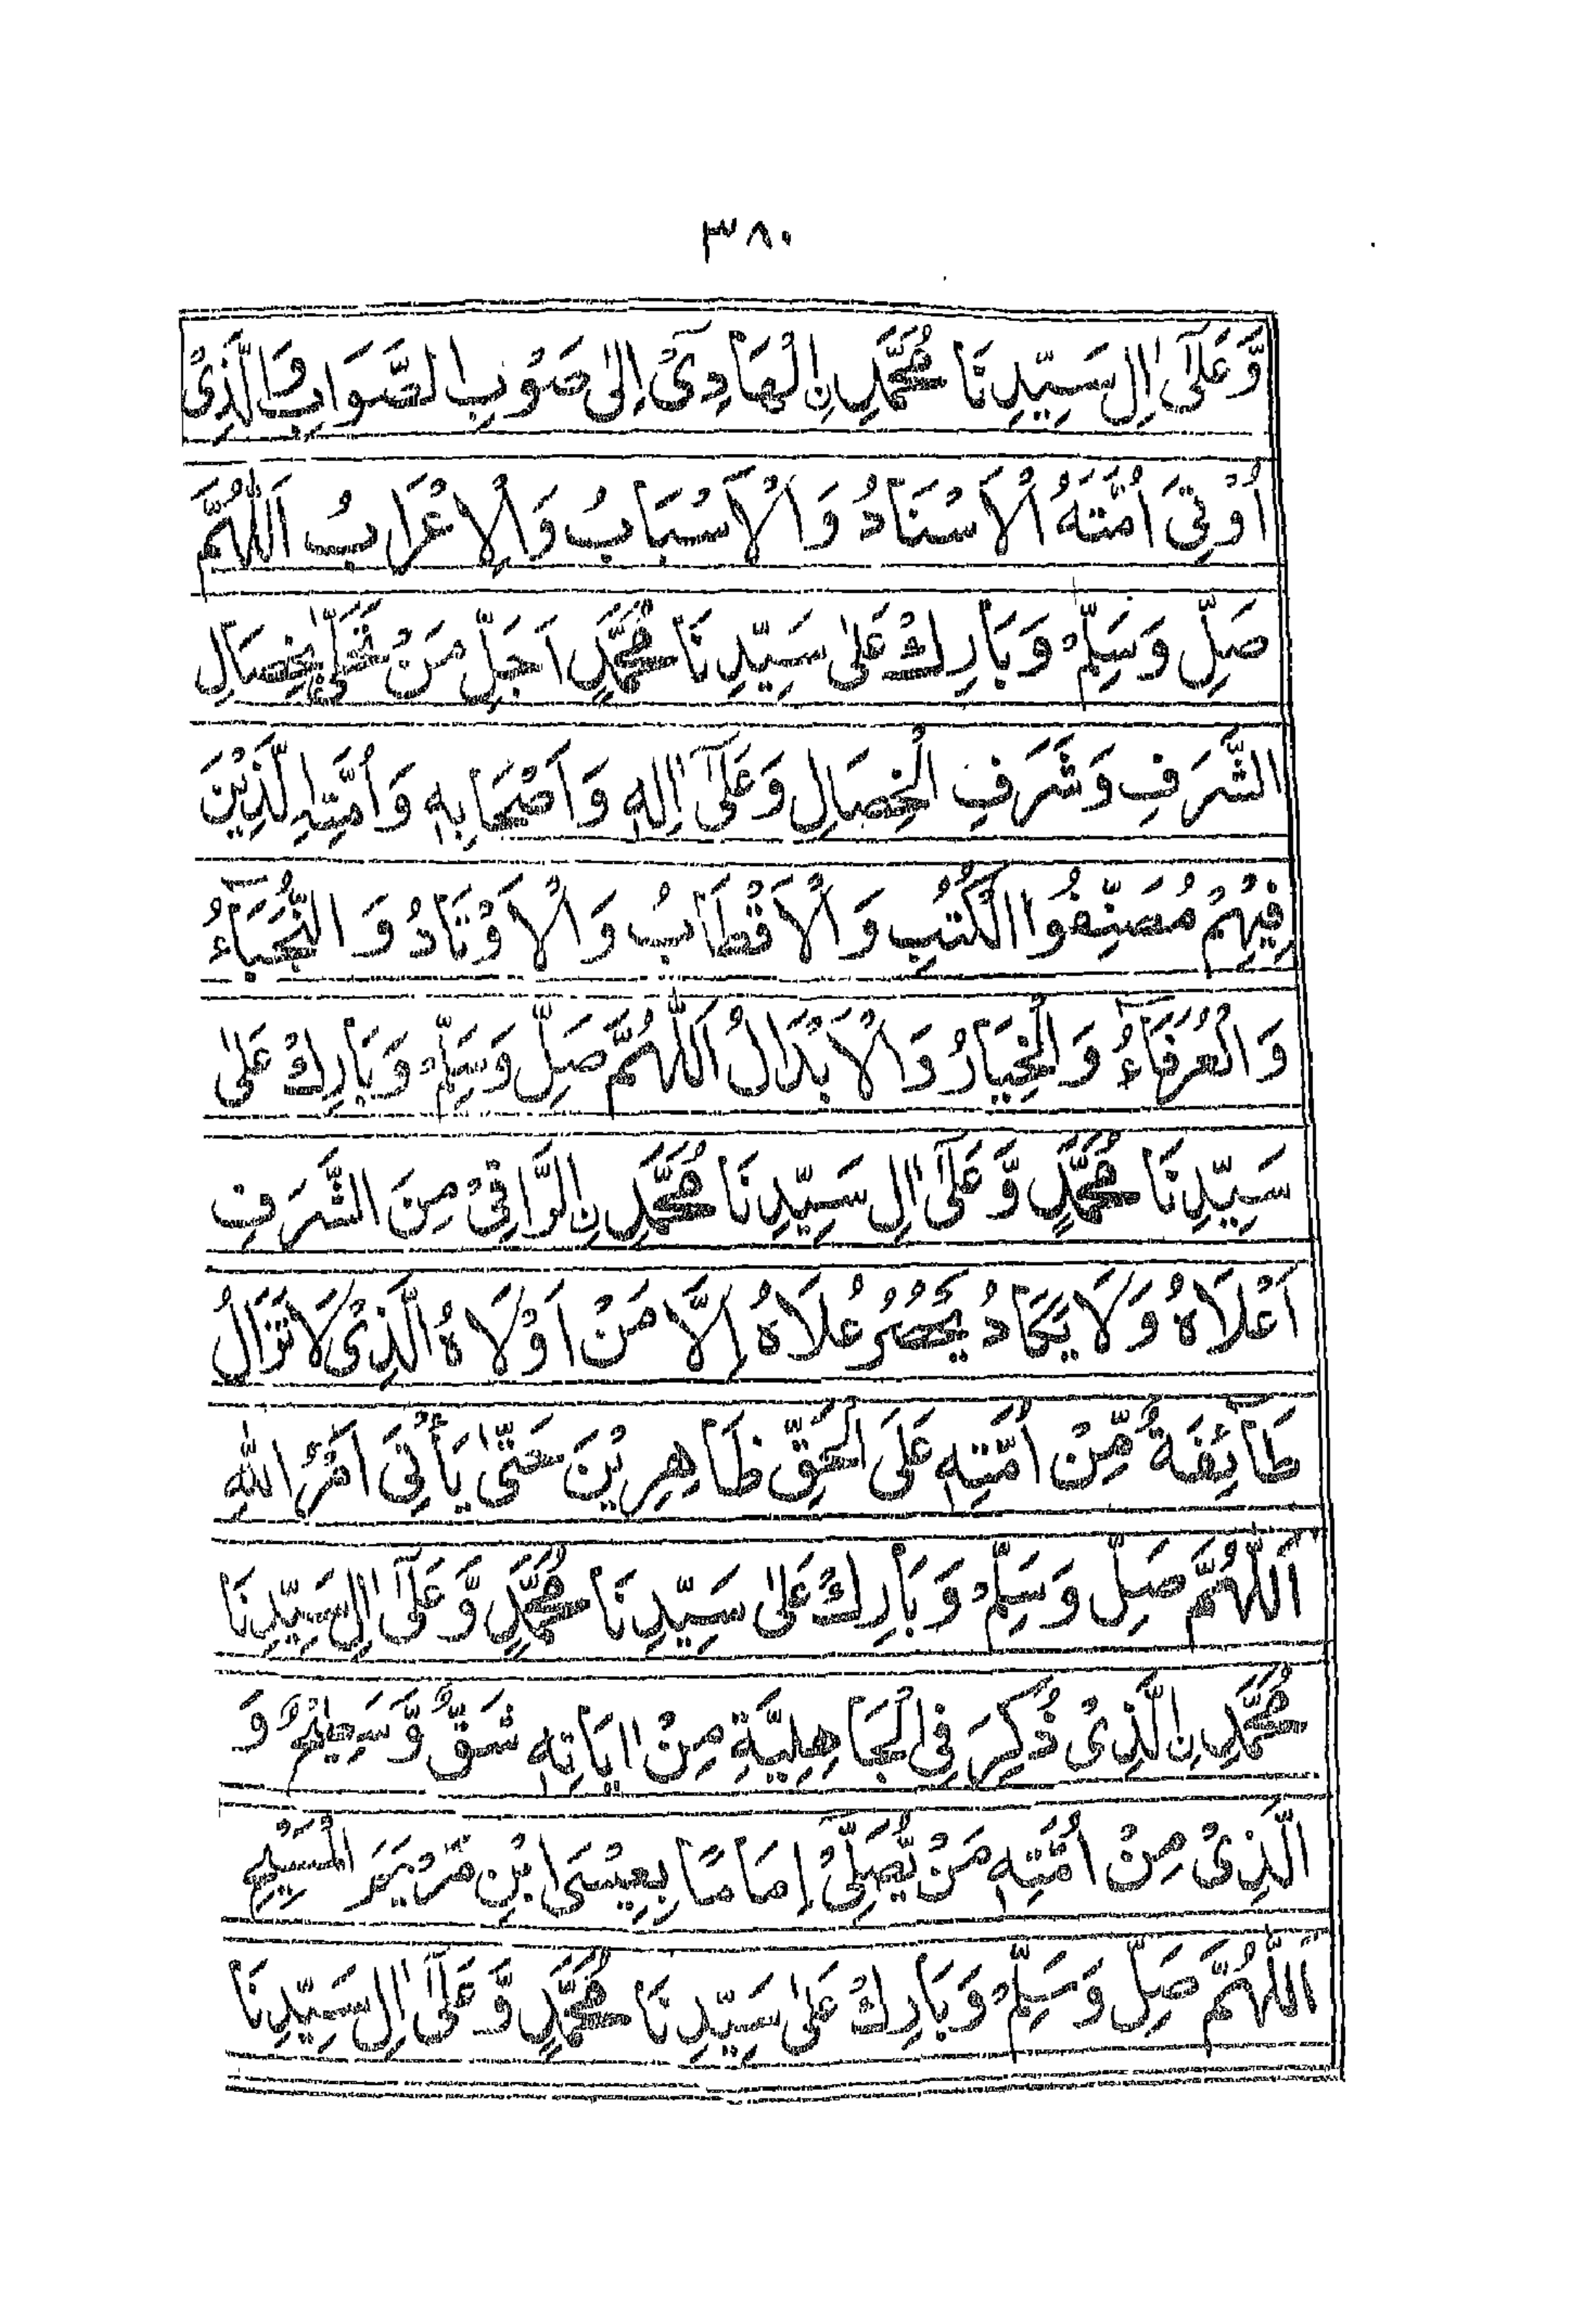 ٣٨٠
وَّعَلٰٓى اٰلِ سَيِّدِنَا مُحَمَّدِنِ الْهَادِىْٓ اِلٰى صَوْبِ الصَّوَابِ وَالَّذِىْ
اُوْتِىَ اُمَّتُهُ الْاَسْنَادُ وَالْاَسْبَابُ وَالْاِعْرَابُ اَللّٰهُمَّ
صَلِّ وَسَلِّمْ وَبَارِكْ عَلٰى سَيِّدِنَا مُحَمَّدٍ اَجَلِّ مَنْ تَحَلّٰى بِخِصَالِ
الشَّرَفِ وَشَرَفِ الْخِصَالِ وَعَلٰٓى اٰلِهٖ وَاَصْحَابِهٖ وَاُمَّتِهِ الَّذِيْنَ
فِيْهِمْ مُصَنِّفُوا الْكُتُبِ وَالْاَقْطَابُ وَالْاَوْتَادُ وَالنُّجَبَآءُ
وَالْعُرَفَآءُ وَالْخِيَارُ وَالْاَبْدَالُ اَللّٰهُمَّ صَلِّ وَسَلِّمْ وَبَارِكْ عَلٰى
سَيِّدِنَا مُحَمَّدٍ وَّعَلٰٓى اٰلِ سَيِّدِنَا مُحَمَّدِنِ الرَّاقِىْ مِنَ الشَّرَفِ
اَعْلَاهُ وَلَا يَكَادُ يَحْصُرُ عُلَاهُ اِلَّا مَنْ اَوْلَاهُ الَّذِىْ لَا تَزَالُ
طَآئِفَةٌ مِّنْ اُمَّتِهٖ عَلَى الْحَقِّ ظَاهِرِيْنَ حَتّٰى يَأْتِىَ اَمْرُ اللّٰهِ
اَللّٰهُمَّ صَلِّ وَسَلِّمْ وَبَارِكْ عَلٰى سَيِّدِنَا مُحَمَّدٍ وَّعَلٰٓى اٰلِ سَيِّدِنَا
مُحَمَّدِنِ الَّذِىْ ذُكِرَ فِى الْجَاهِلِيَّةِ مِنْ اٰيَاتِهٖ شَقٌّ وَّسَطِيْحٌ وَ
الَّذِىْ مِنْ اُمَّتِهٖ مَنْ يُّصَلِّىْ اِمَامًا بِعِيْسَى ابْنِ مَرْيَمَ الْمَسِيْحِ
اَللّٰهُمَّ صَلِّ وَسَلِّمْ وَبَارِكْ عَلٰى سَيِّدِنَا مُحَمَّدٍ وَّعَلٰٓى اٰلِ سَيِّدِنَا